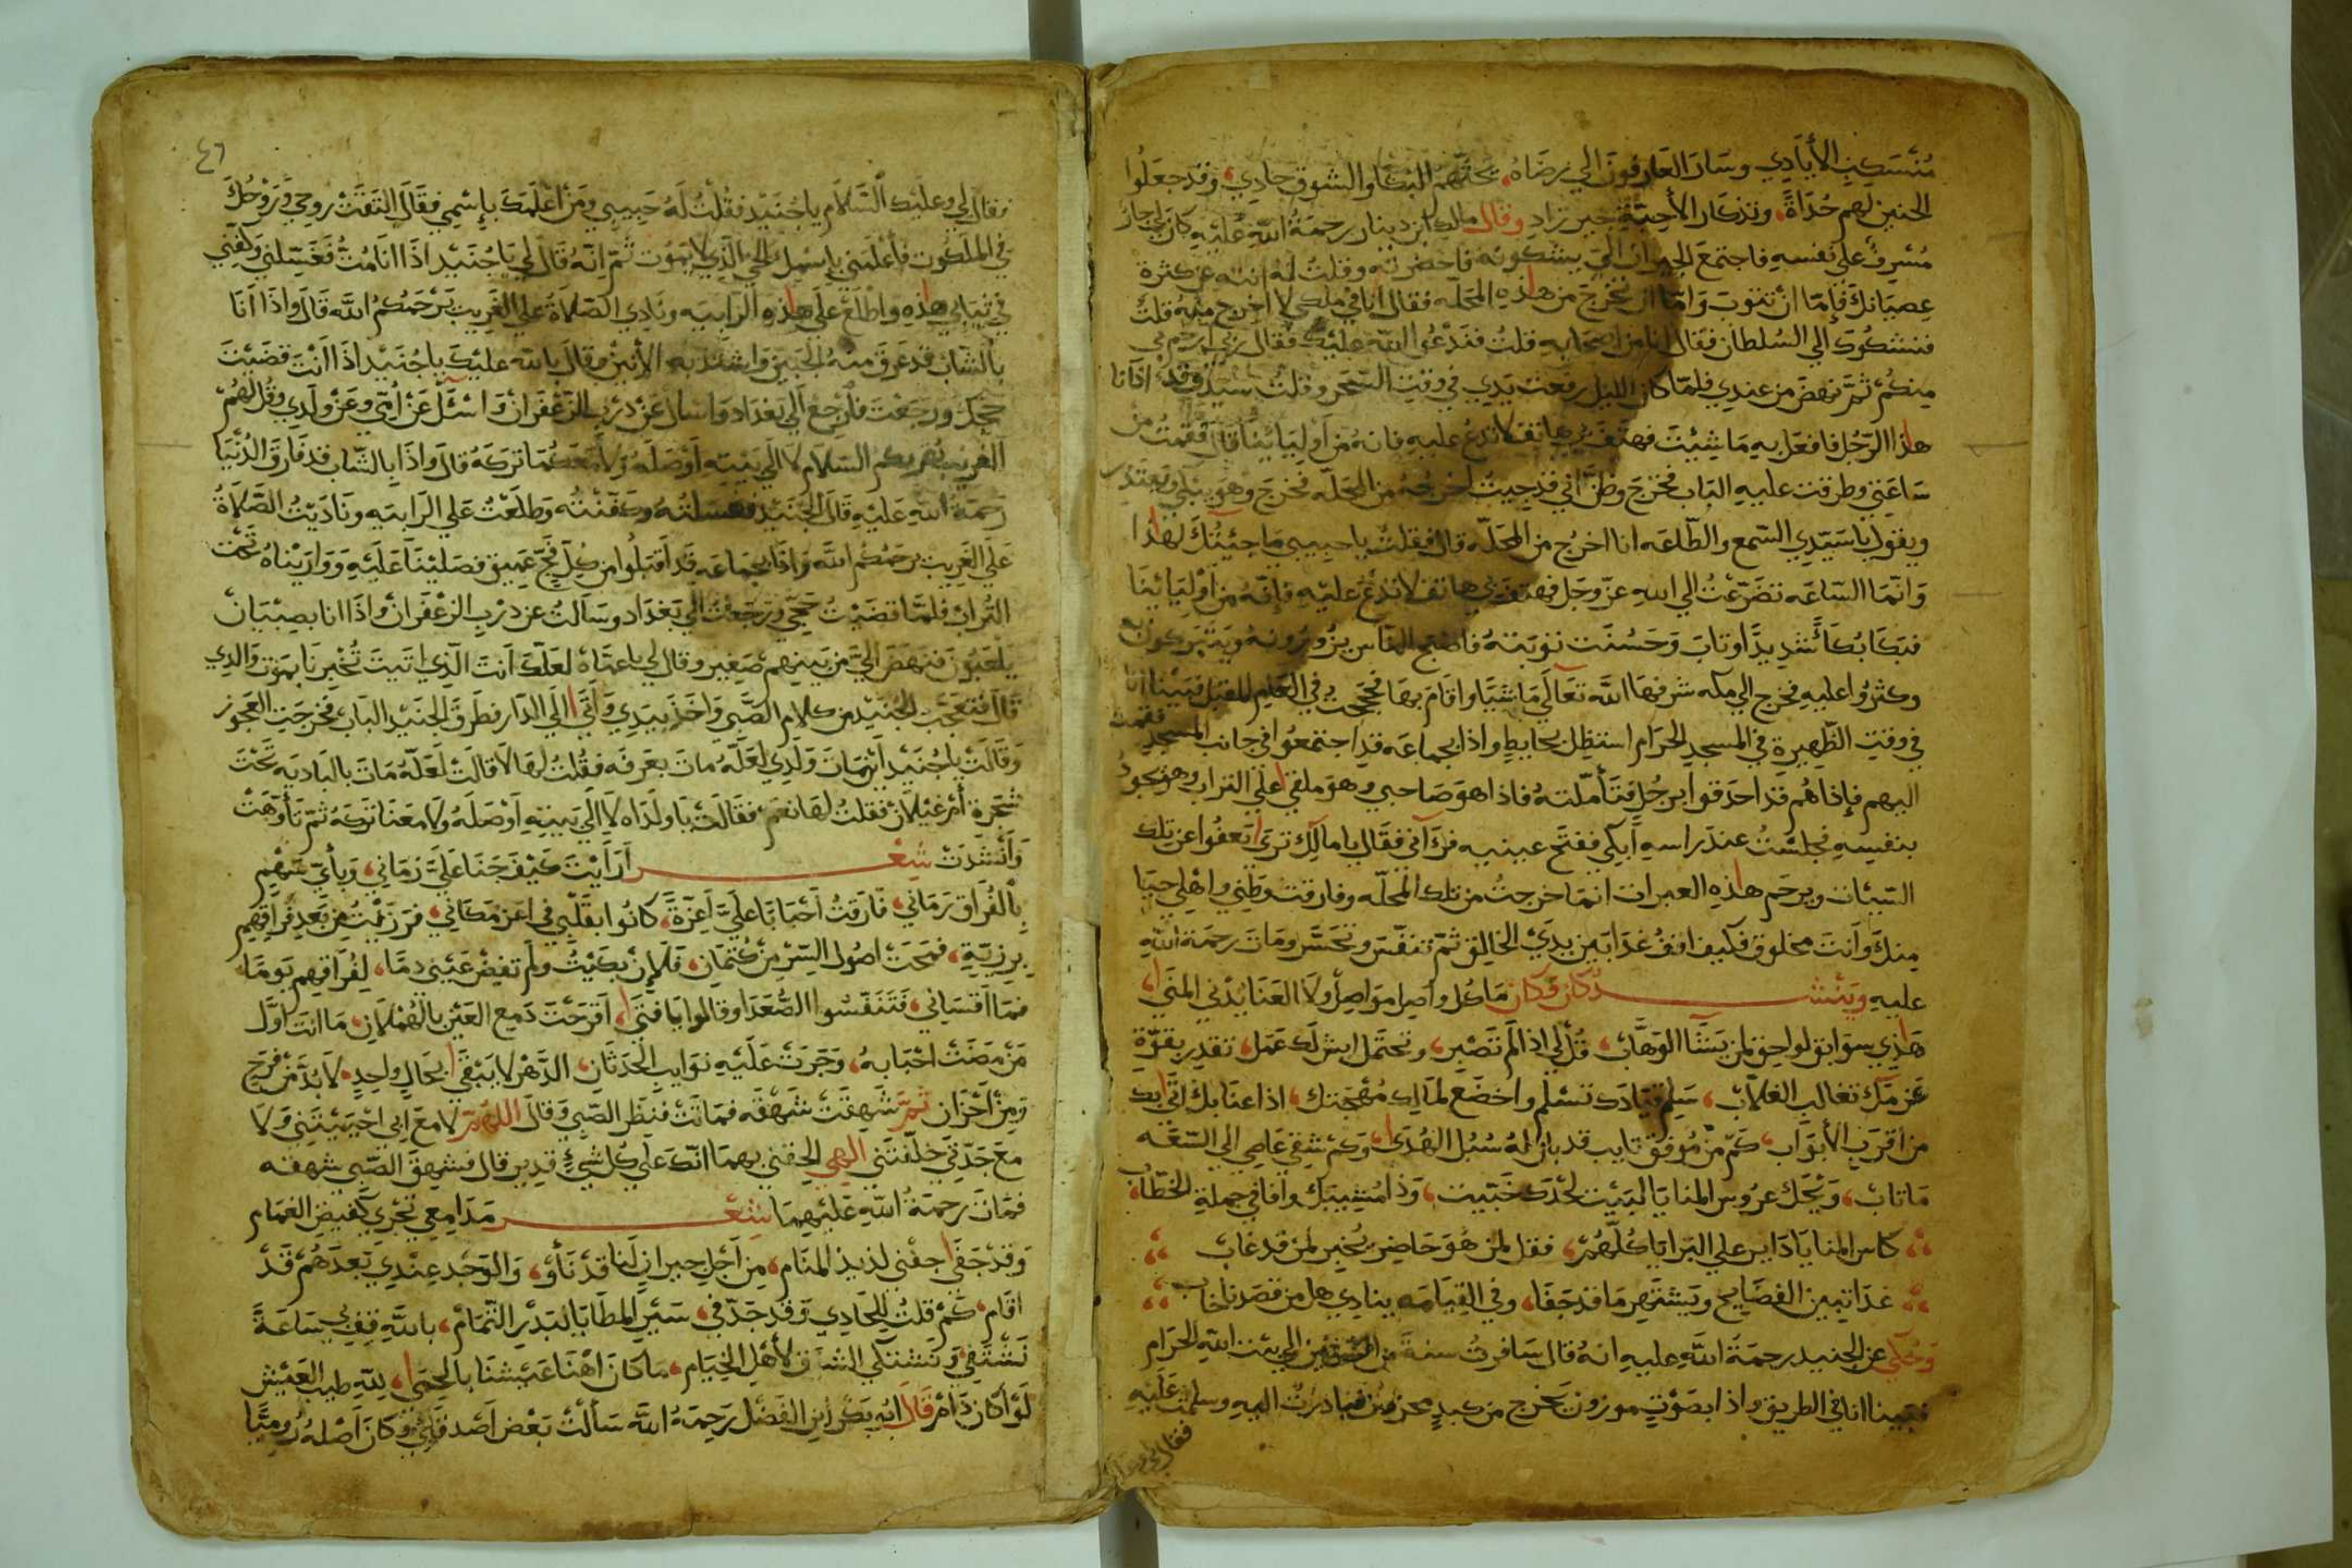 مُنْسَكِبِ الأيَادِي وسَارَ العَارِفونَ الي رضَاهُ، يحثهم البُكا والشوق حادي، وقد جعلوا
الحنين لهم حُدَاةً، وتذكار الأحِبّةِ خير زادِ وقال مالك ابن دينار رحمةُ اللهِ عليْهِ كان لي جار
مُسْرِفٌ علي نفسهِ فاجتمعَ الجيران اليّ يشكونه فاحضرته وقلتُ له انه عن كثرة
عِصيَانكَ فإمّا ان تتوبَ وَامّا ان تخرجَ من هاذِه المحَلّه فقال انا في ملكي لا اخرج منهُ قلتُ
فنشكوك الي السُلطان فقال انا من اصحَابِهِ قلتُ فندْعُوا الله عليْك فقال ربي ارحم لي
مِنكُمْ ثمَّ نهضَ من عندي فلمّا كان الليل رفعْت يَدِي في وقت السّحَر وقلتُ سَيّدي وقد اذانا
هاذا الرّجُل فافعَل بهِ مَا شِيْتَ فهتفَ بي هاتف لا تَدعُ عليهِ فانهُ من اوليَايْنَا قالَ فقمْتُ من
سَاعَتي وطرقت عليهِ البَاب فخرَجَ وظنَّ انّي قد جيتُ اخرِجُهُ من المحَلّه فخرَجَ وهوَ يَبْكي ويَعتَذر
ويقول يا سَيّدِي السّمع والطّاعَه انا اخرُج من المحَلّه قال فقلتُ يا حبيبي مَا جيْتُكَ لهاذا
وَانّمَا السّاعَه تضَرّعْتُ الي اللهِ عزّ وجَل فهتفَ بي هاتف لا تدْعُ عليْهِ فإنّهُ من اوْليَايْنَا
فبَكَا بُكآءً شدِيدًا وتابَ وَحَسُنَت توْبَتهُ فاصْبح النّاس يزُورُونهُ ويَتبَركون به
وكثرُوا عليهِ فخرج الي مكه شرفهَا اللّه تعَالَي مَاشيًا واقامَ بهَا فحججتُ في العَامِ المقبل فبَيْنا انا
في وقت الظّهيرةِ في المسجدِ الحرَام استظِل بحايطٍ واذا بجماعَه قدِ اجتمعُوا في جانب المسجد فقمت
اليهم فإذا هُم قد احدَقوا برجُلٍ فتأمّلتهُ فاذا هوَ صَاحبي وهوَ ملقي علي التراب وهوَ يجودُ
بنفسِهِ فجلسْتُ عندَ راسهِ ابكي ففتَح عينيهِ فرآني فقالَ يا مالِك ترَي اتعفُوا عن تلك
السّيئات ويرحَم هاذِهِ العبرات انمَا خرجتُ من تلك المحَلّه وفارقت وطَني واهْلي حيَا
مِنكَ وَانتَ مخلوق فكيفَ اقفُ غدًا بَين يدَيْ الخالِق ثمّ تنفّسَ وتحَسَّر ومَاتَ رحمَة اللهِ
عليهِ ويَنْشد كان وكان مَا كُل واصِل مواصِلْ ولا العَنَا يُدْني المنَي،
هَاذِي سوَابق لواحِق لمن يَشَآ الوَهَّابْ، قُلْ لي اذا لم تصْبر، وتحتَمل ايش لَك عَمَل، تقدِر بقوّةِ
عَزمَك تغالب الغلّابْ، سَلِم قيَادَك تسْلم واخضَع لمَالِك مُهْجَتك، اذا عتَابك اتي بك
من اقرَب الأبوَاب، كم من مُوفق تايب قد بان لهُ سُبُل الهُدَي، وَكم شقي عَاصِي الي السّعَه
مَا تابْ، وَيْحَك عرُوس المنايَا لبَيْت لحْدَك خَبّيت، وَذا مُشيبَك وافا في جملةِ الخطّاب،
كاس المنايَا دَاير علي البرَايَا كلّهُمْ، فقل لمن هُوَ حَاضِر يُخبر لمن قد غاب
غدًا تبين الفضَايح ويَشتهر مَا قد خَفَا، وفي القِيَامَه ينادِي هل من قصَدنا خاب
وَحُكي عن الجنيدِ رحمَةَ اللّهِ عليهِ انهُ قال سَافرتُ سنةً من السّنِين الي بيْت اللهِ الحَرَامِ
فبَينا انا في الطريق واذا بصَوْتٍ موزون يخرج من كبدٍ محزون فبَادرتُ اليهِ وسلمت عَليْهِ
فقال لي
٤٦
فقال لي وعليْك السَّلام يا جُنَيْد فقلْتُ لَهُ حَبِيبي ومَنْ اعْلَمَكَ بإسْمي فقَالَ التقَتْ روحي وَرُوحُكَ
في الملَكُوت فأعْلَمَني باسْمِكَ الحَيّ الّذي لا يَمُوت ثمّ انّه قَالَ لي يَا جُنَيْد اذَا انَا مُتُّ فَغَسّلني وَكفّني
في ثيَابي هاذِه واطْلَعْ علَي هاذِهِ الرّابيَه ونَادِي الصّلاةَ علَي الغَريب يَرْحَمُكُم اللّه قَالَ وَاذَا انَا
بالشّابْ قد عَرقَ منهُ الجبَين واشتدّ به الأنين وقالَ باللهِ عليْكَ يا جُنَيْد اذَا انْتَ قضَيْتَ
حجّك ورجَعْتَ فارجع الَي بَغدَاد واسال عَن دَرْب الزّعفرانْ وَاسْئَلْ عَن امّي وعَن ولَدِي وقُل لهُمْ
الغَريب يُقريكم السّلام لا الي بَيْتِه اوْصَلَه ولا مَعَكُمَا تركَهُ قالَ وَاذَا بالشّاب قد فَارَقَ الدُّنْيَا
رَحمَة اللهِ عَليْهِ قَالَ الجنَيْد فغسَلتُهُ وكفّنْتُه وَطلَعْتُ عَلي الرّابيَه ونَادَيْتُ الصّلاةُ
عَلَي الغَريب يرحَمُكُم اللّه وَاذَا بجماعَه قد اَقبَلُوا من كُل فَجّ عَمِيق فصَليْنَا عَليْهِ وَوَارَيْنَاهُ تحتَ
التُّرابْ فلمّا قضَيْتُ حَجّي وَرَجعْتُ الي بَغدَاد وسَالتُ عن درْبِ الزعْفرانْ واذَا انا بصِبْيَانْ
يَلعَبُونَ فنهَضَ الَيّ من بَينهمْ صَغِير وقال لي يا عمّاهُ لعلّكَ انتَ الّذِي اتيتَ تُخبِرنَا بموْت والدِي
قَالَ فتعَجّبَ الجنَيْد من كلام الصّبي وَاخذَ بيَدِي وَاتَي الَي الدّار فطَرقَ الجنَيْد البَاب فخرَجَت العَجوز
وَقَالتْ يا جُنَيْد اَيْن مَاتَ وَلدِي لعَلّهُ مَاتَ بعَرفَه فقُلتُ لهَا لا قالتْ لعَلّهُ مَاتَ بالبَاديَه تحتَ
شجَرة أمّ غَيْلان فقلتُ لهَا نعَم فقَالتْ يا ولَدَاه لا الَي بَيتِهِ اوْصَلَهُ ولا مَعَنا تركَهُ ثمّ تأوّهَتْ
وَأنْشَدَتْ شِعْر أرَأيْتَ كَيْفَ جَنَا عَلَيّ زمَاني، وَبأيّ سَهْمٍ
بالْفُراق رَمَاني، فَارَقتُ احْبَابًا علَيّ اعِزّةً، كانُوا بقَلْبي في اعَز مَكَاني، فرَزيْتُ من بَعدِ فراقهِم
برزيّةٍ، فمحَتْ اصُولَ السِّرّ من كُتمَان، فَلَإنْ بَكَيْتُ ولَم تفِضْ عَيْني دمًا، لفُراقِهِم يَومًا
فمَا اقسَاني، فَتَنَفّسُوا الصُّعَدَا وقالوا يَا فتَي، اقرَحْتَ دَمع العَيْن بالهَمَلان، مَا انتَ اوّل
مَنْ مَضَتْ احْبَابهُ، وَجَرَتْ عَلَيْهِ نوَايب الحَدثَان، الدّهْرُ لا يَبْقَي بحَالٍ واحِدٍ، لا بُدّ مَنْ فرَح
وَمِن اَحْزَان ثمّ شَهقتْ شَهْقه فمَاتَتْ فنَظَر الصّبي وَقالَ اللهُمّ لا مَعَ ابي احْيَيْتَني ولا
مَعَ جَدّتي خلّفتَني الهي الحِقني بهِمَا انّكَ علَي كُل شيْءٍ قديرٌ قال فشهقَ الصّبي شهقَه
فمَاتَ رحمَةُ اللّهِ عَليْهِمَا شِعْر مَدَامِعي تجْري كَفيضِ الغمَام
وَقدْ جَفَي جفْني لذيذَ المنَام، مِن اَجْلِ جيرانٍ لنَا قدْ نَأوْ، وَالوَجْد عِنْدِي بَعدَهُم قَدْ
اقَام، كَمْ قلتُ للحَادِي وَقد جَدّ في، سَيْر المطَايَا لبَدْر التّمَامْ، باللّهِ قِف بي سَاعَةً
نَشْتَفي وَنَشتكي الشوق لأهْلِ الخِيَام، مَا كَانَ اهْنَا عَيْشَنَا بالحِمَي، للّهِ طِيب العَيْش
لَوْ كانَ دَامْ قَالَ ابُو بَكر ابن الفَضْل رَحِمَهُ اللّه سَألتُ بَعْض اَصْدقَائي وكَان اَصْلهُ رُوميًّا